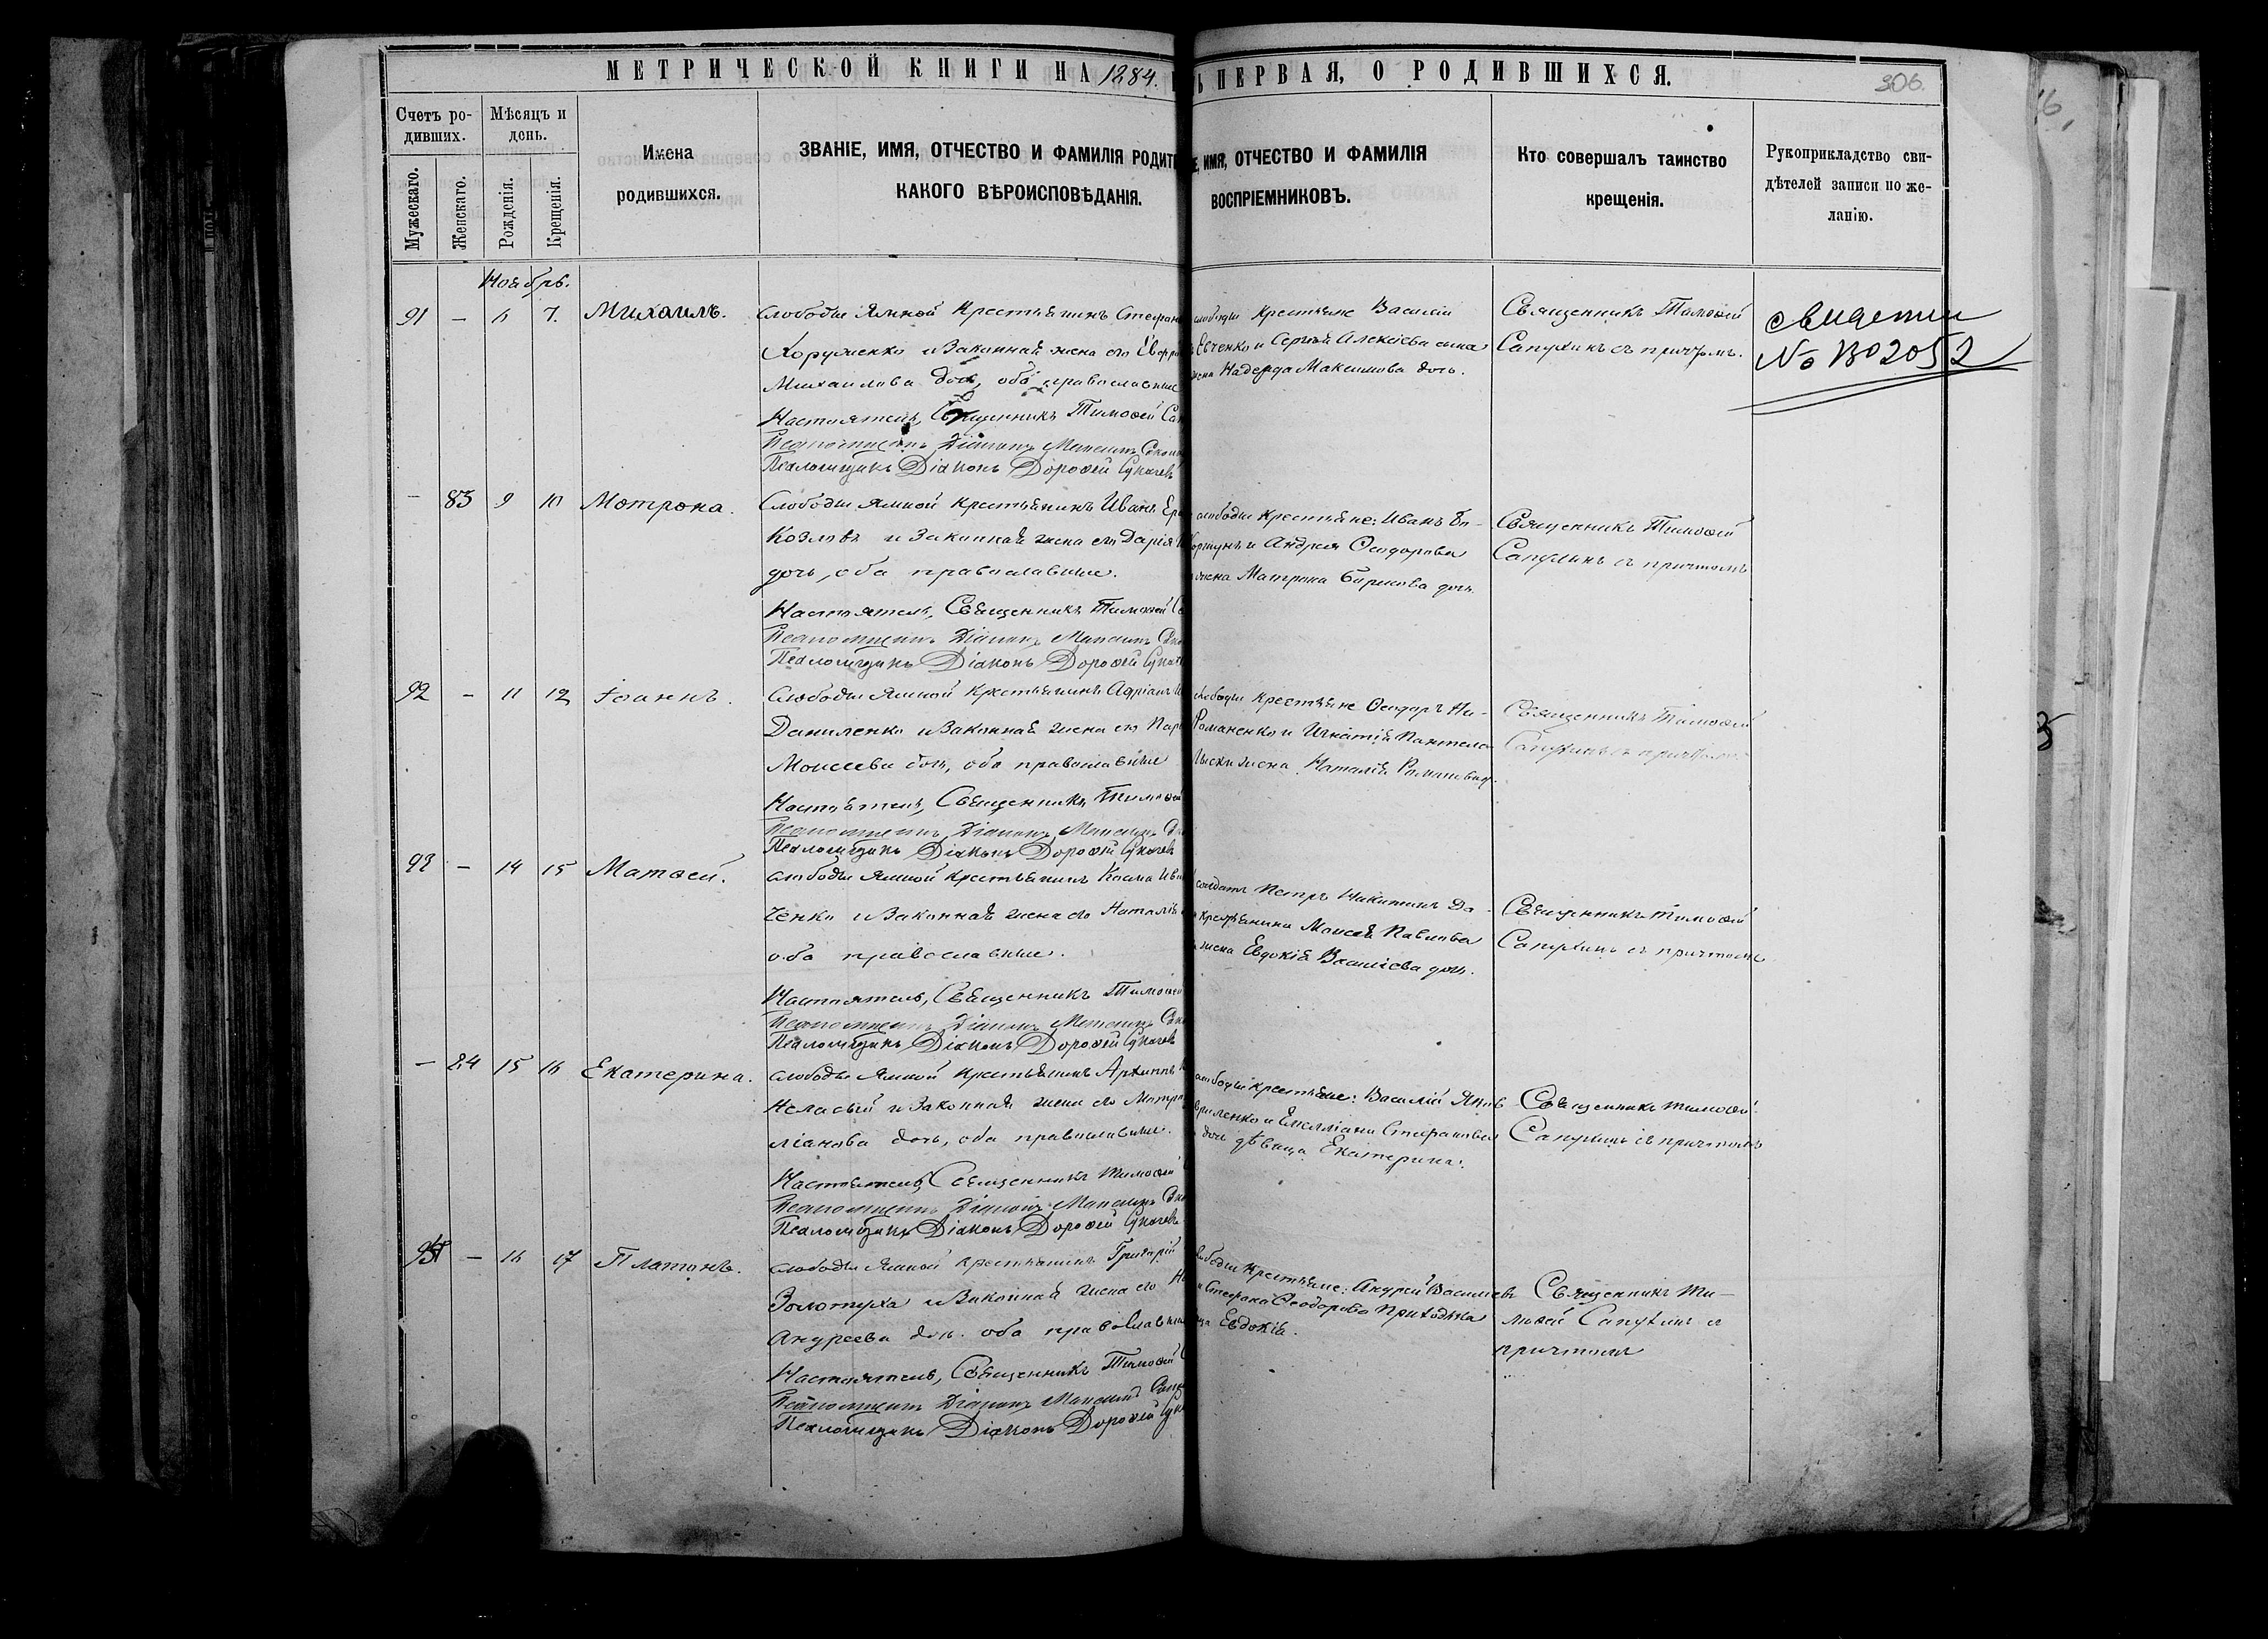 МЕТРИЧЕСКОЙ КНИГИ НА 1884.
Ь ПЕРВАЯ, О РОДИВШИХСЯ.
306.
Счетъ ро-
дившихъ.
Мужескаго.
Женскаго.
Мѣсяцъ и
день.
Рожденія.
Крещенія.
Имена
родившихся.
ЗВАНІЕ, ИМЯ, ОТЧЕСТВО И ФАМИЛІЯ РОДИТ
КАКОГО ВѢРОИСПОВѢДАНІЯ.
Е, ИМЯ, ОТЧЕСТВО И ФАМИЛІЯ
ВОСПРІЕМНИКОВЪ.
Кто совершалъ таинство
крещенія.
Рукоприкладство сви-
дѣтелей записи по же-
ланію.
Ноябрь.
91 – 6 7. Михаилъ.
Слободы Ямной Крестьянинъ Стефан
Хоруженко и Законная жена его Евфро
Михаилова дочь, оба православные
Настоятель, Священникъ Тимоѳей Сап
Псаломщикъ Діаконъ Максимъ
Псаломщикъ Діаконъ Дороѳей Сукачев
слободы Крестьяне Василій
Евченко и Сергѣя Алексѣева сына
жена Надежда Максимова дочь.
Священникъ Тимоѳей
Сапухинъ съ причтомъ.
№ 1302052
– 83 9 10 Мотрона.
Слободы Ямной крестьянинъ Иванъ Ер
Козловъ и Законная жена его Дарія
дочь, оба православные.
Настоятель, Священникъ Тимоѳей Са
Псаломщикъ Діаконъ Максимъ
Псаломщикъ Діаконъ Дороѳей Сукач
слободы Крестьяне: Иванъ
и Андрея Ѳеодорова
жена Матрона Борисова дочь.
Священникъ Тимоѳей
Сапухинъ съ причтомъ
92 – 11 12 Іоаннъ.
Слободы Ямной Крестьянинъ Адріанъ
Даниленко и Законная жена его Пар
Моисеева дочь, оба православные
Настоятель, Священникъ Тимоѳей
Псаломщикъ Діаконъ Максимъ
Псаломщикъ Діаконъ Дороѳей Сукачев
слободы Крестьяне Ѳеодоръ Ни-
Романенко и Игнатія Пантелеи
жена Наталія
Священникъ Тимоѳей
Сапухинъ съ причтомъ
93 – 14 15 Матѳей.
слободы Ямной Крестьянинъ Косма Ив
ченко и Законная жена его Наталія
оба православные.
Настоятель, Священникъ Тимоѳей
Псаломщикъ Діаконъ Максимъ
Псаломщикъ Діаконъ Дороѳей Сукачев
солдатъ Петръ Никитинъ До-
крестьянина Моисея Павлова
жена Евдокія Василіева дочь.
Священникъ Тимоѳей
Сапухинъ съ причтомъ
– 84 15 16 Екатерина.
слободы Ямной Крестьянинъ Архиппъ
и Законная жена его Матро
ліанова дочь, оба православные.
Настоятель, Священникъ Тимоѳей
Псаломщикъ Діаконъ Максимъ
Псаломщикъ Діаконъ Дороѳей Сукачев
слободы крестьяне: Василій Яков
вриленко и Емиліана Стефанова
дочь дѣвица Екатерина.
Священникъ Тимоѳей
Сапухинъ съ причтомъ
94 – 16 17 Платонъ.
слободы Ямной Крестьянинъ Григорій
Золотуха и Законная жена его
Андреева дочь. оба православные
Настоятель, Священникъ Тимоѳей
Псаломщикъ Діаконъ Максимъ
Псаломщикъ Діаконъ Дороѳей Сук
слободы Крестьяне: Андрей Василіев
и Стефана Ѳеодорова Приходька
Евдокія.
Священникъ Ти-
моѳей Сапухинъ съ
причтомъ